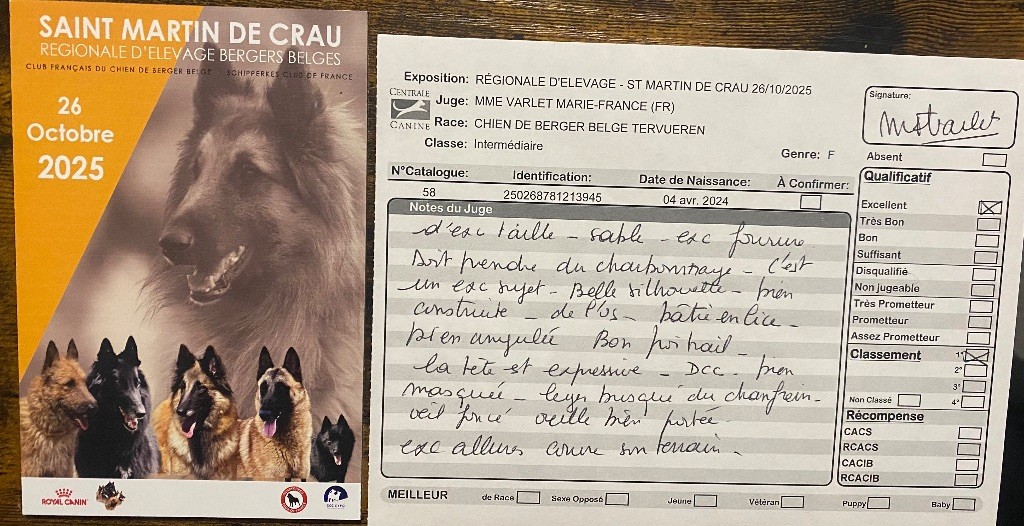 SAINT MARTIN DE CRAU
REGIONALE D'ELEVAGE BERGERS BELGES
CLUB FRANÇAIS DU CHIEN DE BERGER BELGE SCHIPPERKES CLUB OF FRANCE
26
Octobre
2025
ROYAL CANIN
Exposition: RÉGIONALE D'ELEVAGE - ST MARTIN DE CRAU 26/10/2025
CENTRALE
CANINE
Juge: MME VARLET MARIE-FRANCE (FR)
Race: CHIEN DE BERGER BELGE TERVUEREN
Classe: Intermédiaire
Genre: F
N°Catalogue: Identification: Date de Naissance: À Confirmer:
58 250268781213945 04 avr. 2024
Notes du Juge
d'exc taille - sable - exc fourrure
Doit prendre du charbonnage - C'est
un exc sujet - Belle silhouette - bien
construite - de l'os - bâtie en lice -
bien angulée Bon poitrail -
la tête est expressive - DCC - bien
masquée - busqué du chanfrein -
oeil foncé oreille bien portée -
exc allures couvre son terrain -
Signature:
Absent
Qualificatif
Excellent
Très Bon
Bon
Suffisant
Disqualifié
Non jugeable
Très Prometteur
Prometteur
Assez Prometteur
Classement 1°
2°
3°
Non Classé 4°
Récompense
CACS
RCACS
CACIB
RCACIB
MEILLEUR de Race Sexe Opposé Jeune Vétéran Puppy Baby